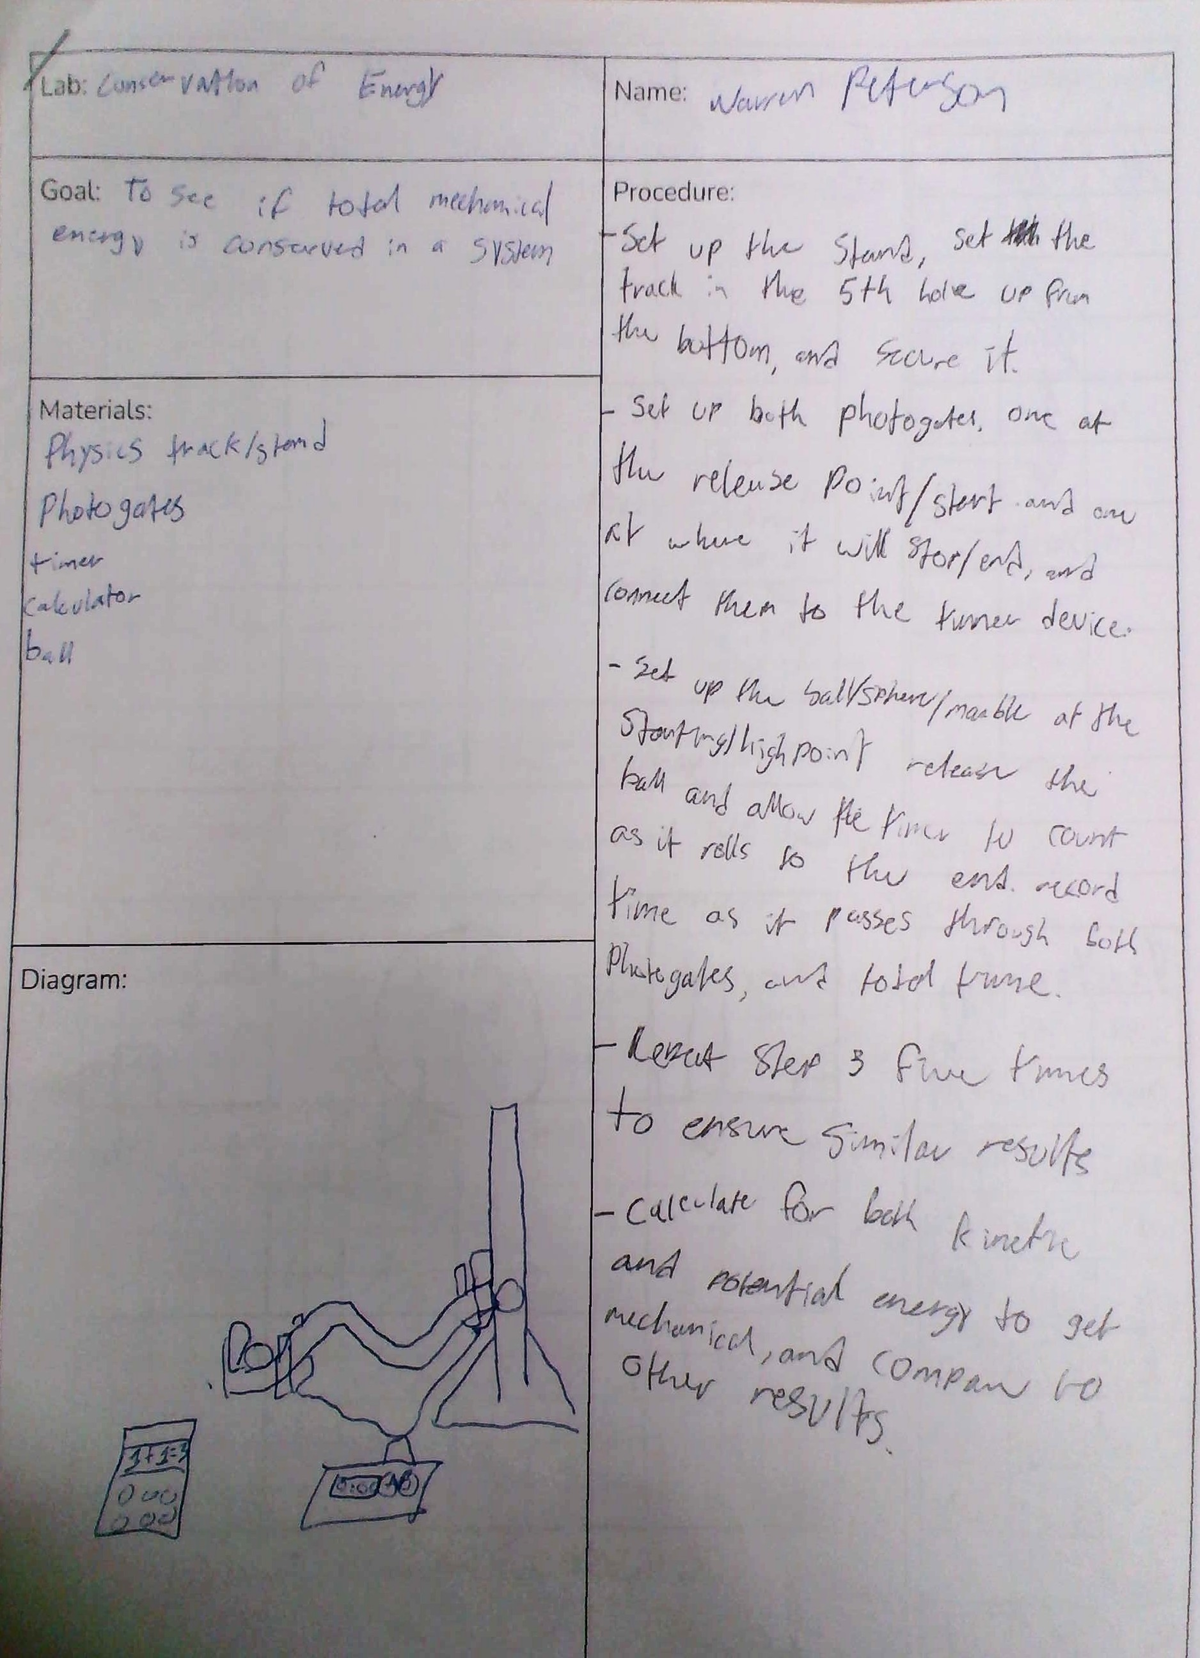 Lab: Conservation of Energy
Name: Warren Peterson
Goal: To see if total mechanical
energy is conserved in a system
Materials:
Physics track/stand
Photogates
timer
calculator
ball
Diagram:
1+1=3
000
000
Procedure:
- Set up the stand, set the
track in the 5th hole up from
the bottom, and secure it.
- Set up both photogates, one at
the release point/start and one
at where it will stop/end, and
connect them to the timer device.
- Set up the ball/sphere/marble at the
starting/high point release the
ball and allow the timer to count
as it rolls to the end. record
time as it passes through both
photogates, and total time.
- Repeat step 3 five times
to ensure similar results
- Calculate for both kinetic
and potential energy to get
mechanical, and compare to
other results.